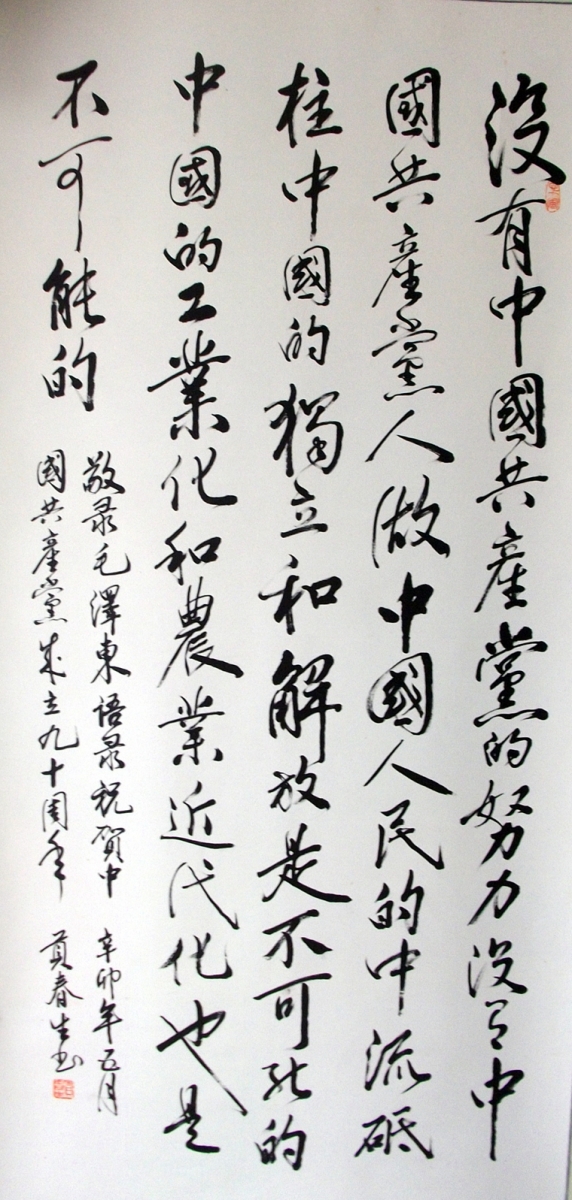 没有中國共產黨的努力没有中
國共產黨人做中國人民的中流砥
柱中國的獨立和解放是不可能的
中國的工業化和農業近代化也是
不可能的
敬录毛澤東語录祝贺中
國共產黨成立九十周年
辛卯年五月
春生书